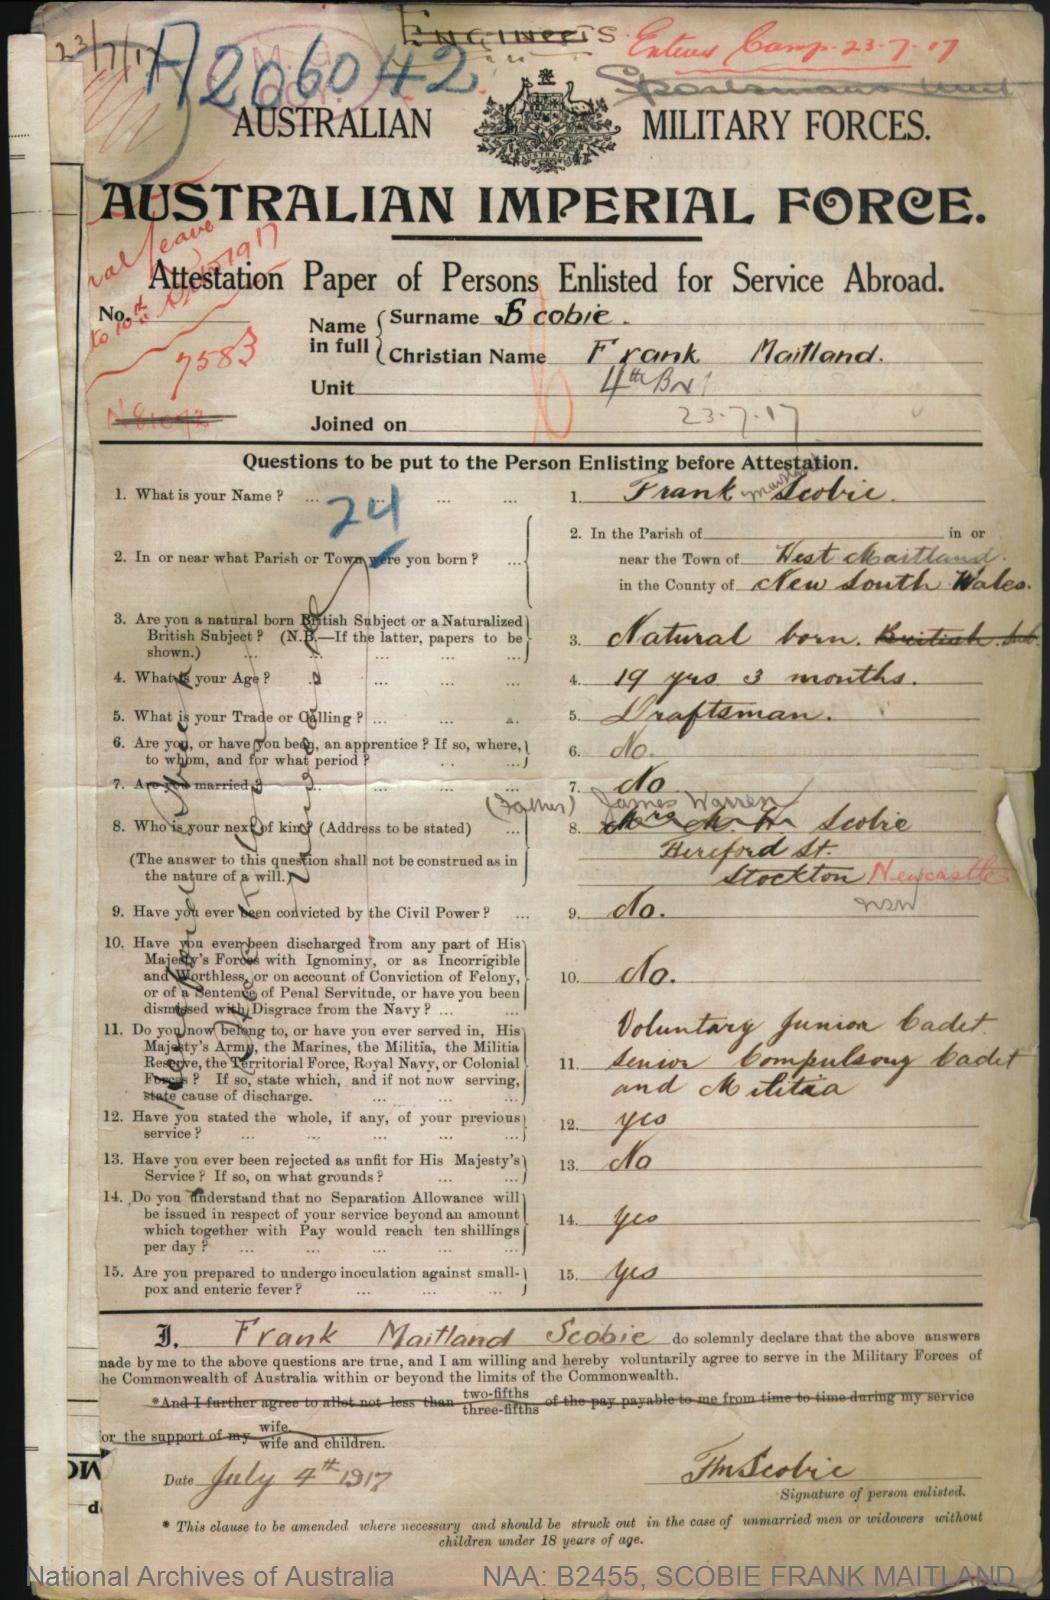 23/7/17
A206042
ENGINEERS
Enters Camp 23-7-17
Sportsman's Unit
AUSTRALIAN MILITARY FORCES.
AUSTRALIA
AUSTRALIAN IMPERIAL FORCE.
leave
to 10th
1917
Attestation Paper of Persons Enlisted for Service Abroad.
No.
7583
N81092
Name in full { Surname Scobie.
Christian Name Frank Maitland.
Unit 4th Bn
Joined on 23-7-17
Questions to be put to the Person Enlisting before Attestation.
1. What is your Name? ... ... ... ... 1. Frank Maitland Scobie.
24
2. In or near what Parish or Town were you born? ... 2. In the Parish of in or
near the Town of West Maitland.
in the County of New South Wales.
3. Are you a natural born British Subject or a Naturalized
British Subject? (N.B.—If the latter, papers to be
shown.) ... ... ... ... ... 3. Natural born. British Sub.
4. What is your Age? ... ... ... ... 4. 19 yrs 3 months.
5. What is your Trade or Calling? ... ... ... 5. Draftsman.
6. Are you, or have you been, an apprentice? If so, where,
to whom, and for what period? ... ... 6. No.
7. Are you married? ... ... ... ... 7. No
(Father) James Warren
8. Who is your next of kin? (Address to be stated) ... 8. Mrs M. W. Scobie
Hereford St.
(The answer to this question shall not be construed as in
the nature of a will.)
Stockton Newcastle
NSW
9. Have you ever been convicted by the Civil Power? ... 9. No.
10. Have you ever been discharged from any part of His
Majesty's Forces with Ignominy, or as Incorrigible
and Worthless, or on account of Conviction of Felony,
or of a Sentence of Penal Servitude, or have you been
dismissed with Disgrace from the Navy? ... ... 10. No.
11. Do you now belong to, or have you ever served in, His
Majesty's Army, the Marines, the Militia, the Militia
Reserve, the Territorial Force, Royal Navy, or Colonial
Forces? If so, state which, and if not now serving,
state cause of discharge. ... ... ...
11. Voluntary Junior Cadet.
Senior Compulsory Cadet
and Militia
12. Have you stated the whole, if any, of your previous
service? ... ... ... ... ... 12. yes
13. Have you ever been rejected as unfit for His Majesty's
Service? If so, on what grounds? ... ... 13. No
14. Do you understand that no Separation Allowance will
be issued in respect of your service beyond an amount
which together with Pay would reach ten shillings
per day? ... ... ... ... ... 14. yes
15. Are you prepared to undergo inoculation against small-
pox and enteric fever? ... ... ... 15. yes
I, Frank Maitland Scobie do solemnly declare that the above answers
made by me to the above questions are true, and I am willing and hereby voluntarily agree to serve in the Military Forces of
the Commonwealth of Australia within or beyond the limits of the Commonwealth.
*And I further agree to allot not less than two-fifths three-fifths of the pay payable to me from time to time during my service
for the support of my wife. wife and children.
Date July 4th 1917
FMScobie
Signature of person enlisted.
* This clause to be amended where necessary and should be struck out in the case of unmarried men or widowers without
children under 18 years of age.
National Archives of Australia NAA: B2455, SCOBIE FRANK MAITLAND